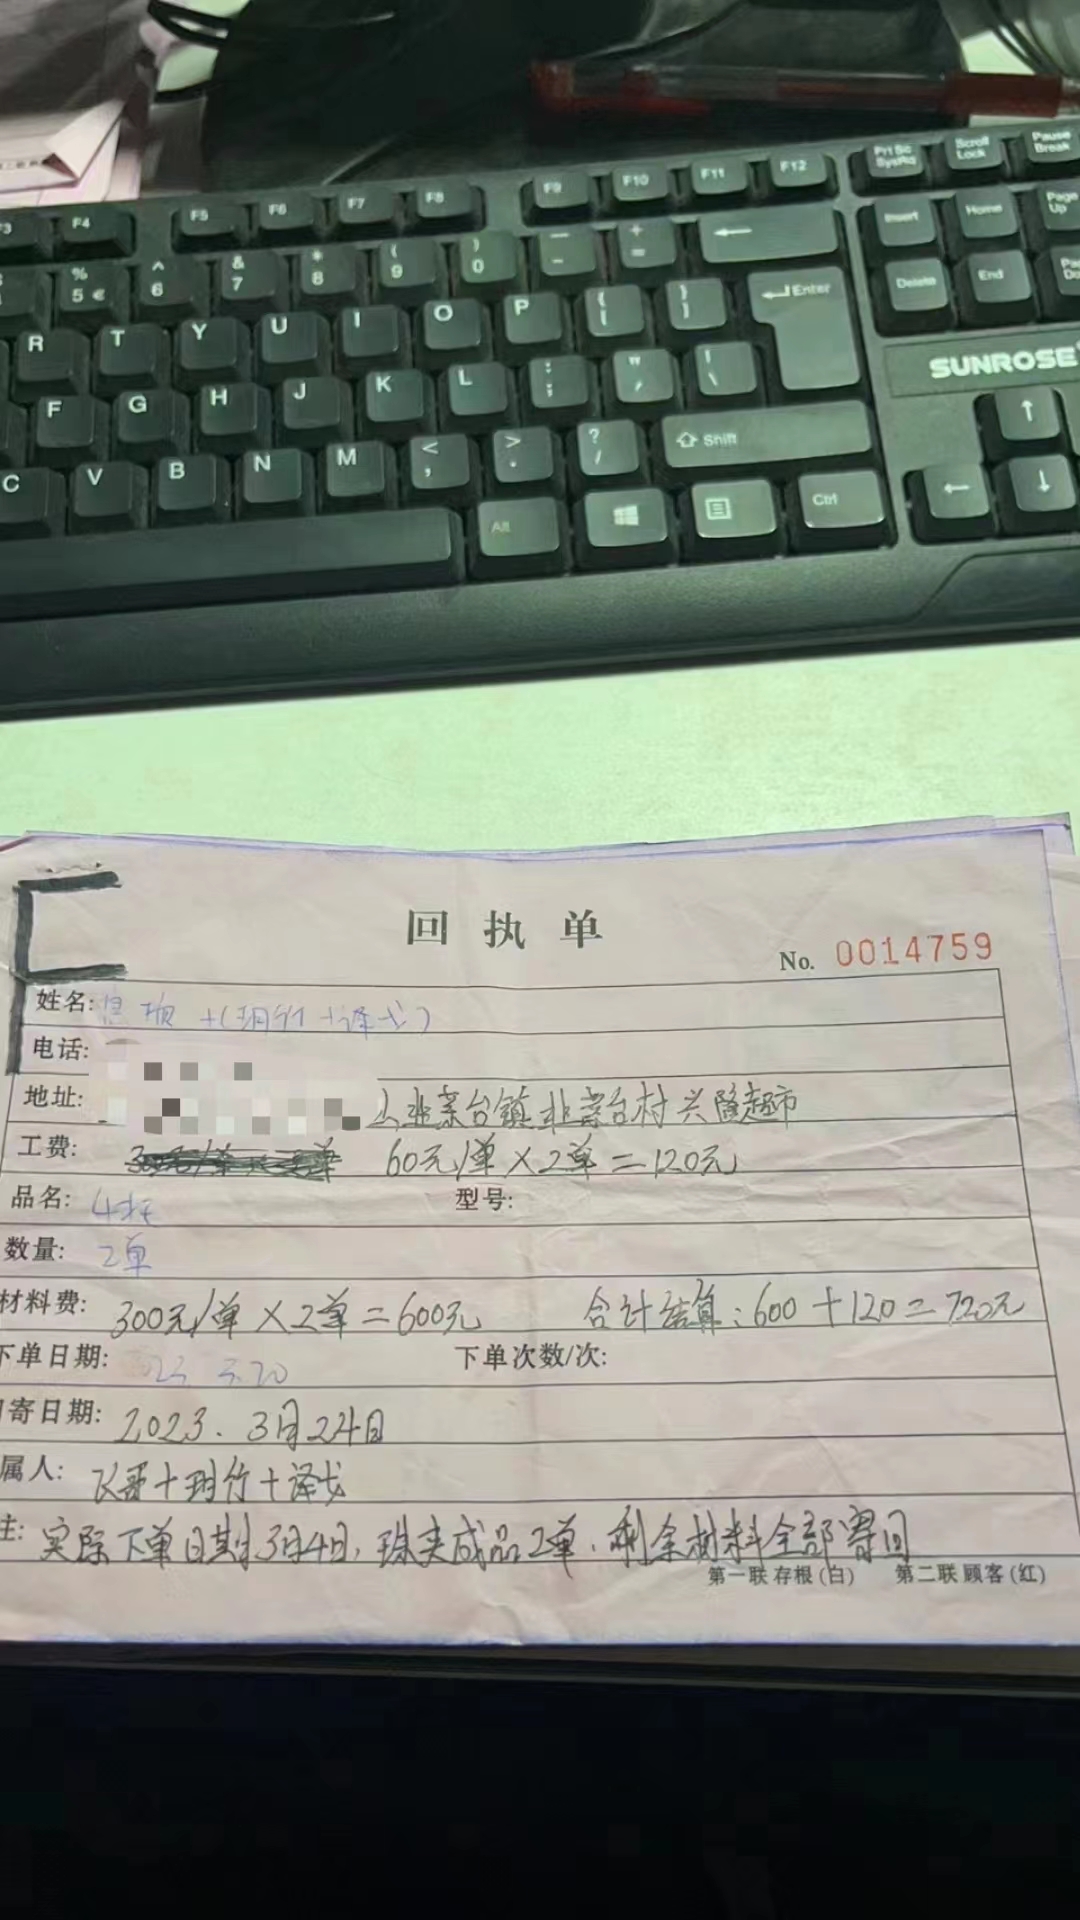 F3 F4 F5 F6 F7 F8 F9 F10 F11 F12 Prt Sc SysRq Scroll Lock Pause Break
% 5 € ^ 6 & 7 * 8 ( 9 ) 0 — - + = ← Insert Home Page Up
R T Y U I O P { [ } ] Enter Delete End
F G H J K L : ; " ' | \ SUNROSE
C V B N M < , > . ? / Shift ↑
Alt Ctrl ← ↓
回执单
No. 0014759
姓名: +(玥竹+译戈)
电话:
地址: 韭菜台镇韭菜台村兴隆超市
工费: 60元/单×2单=120元
品名: 型号:
数量: 2单
材料费: 300元/单×2单=600元 合计结算:600+120=720元
下单日期: 23 3.20 下单次数/次:
寄日期: 2023.3月24日
属人: 飞哥+玥竹+译戈
注: 实际下单日期3月4日,珠夹成品2单,剩余材料全部寄回
第一联 存根(白) 第二联 顾客(红)